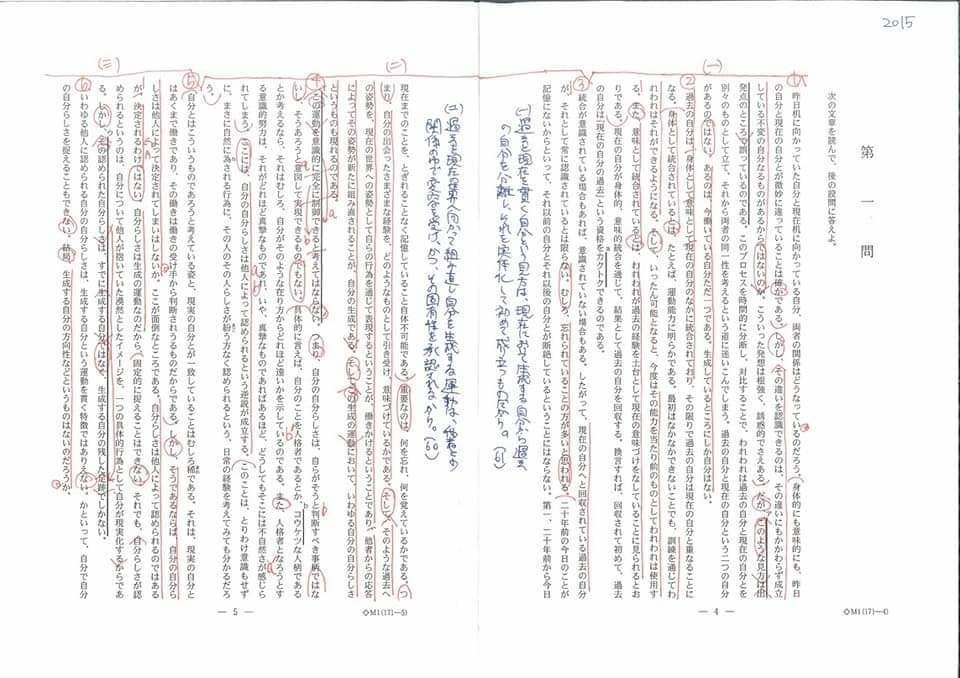 2015
第一問
次の文章を読んで、後の設問に答えよ。
(一)
1
昨日机に向かっていた自分と現在机に向かっている自分、両者の関係はどうなっているのだろう。身体的にも意味的にも、昨日
の自分と現在の自分とが微妙に違っていることは確かである。しかし、その違いを認識できるのは、その違いにもかかわらず成立
している不変の自分なるものがあるからではないのか。こういった発想は根強く、誘惑的でさえある。だが、このような見方は出
発点のところで誤っているのである。このプロセスを時間的に分断し、対比することで、われわれは過去の自分と現在の自分とを
別々のものとして立て、それから両者の同一性を考えるという道に迷いこんでしまう。過去の自分と現在の自分という二つの自分
があるのではない。あるのは、今働いている自分ただ一つである。生成しているところにしか自分はない。
2
過去の自分は、身体として意味として現在の自分のなかに統合されており、その限りで過去の自分は現在の自分と重なることに
なる。身体として統合されているとは、たとえば、運動能力に明らかである。最初はなかなかできないことでも、訓練を通じてわ
れわれはそれができるようになる。そして、いったん可能となると、今度はその能力を当たり前のものとしてわれわれは使用す
る。また、意味として統合されているとは、われわれが過去の経験を土台として現在の意味づけをなしていることに見られるとお
りである。現在の自分が身体的、意味的統合を通じて、結果として過去の自分を回収する。換言すれば、回収されて初めて、過去
の自分は「現在の自分の過去」という資格をカクトクできるのである。
a
3
統合が意識されている場合もあれば、意識されていない場合もある。したがって、現在の自分へと回収されている過去の自分
が、それとして常に認識されているとは限らない。むしろ、忘れられていることの方が多いと思われる。二十年前の今日のことが
記憶にないからといって、それ以前の自分とそれ以後の自分とが断絶しているということにはならない。第一、二十年前から今日
— 4 —
◇M1(17)—4)
(二)
現在までのことを、とぎれることなく記憶していること自体不可能である。重要なのは、何を忘れ、何を覚えているかである。つ
まり、自分の出会ったさまざまな経験を、どのようなものとして引き受け、意味づけているかである。そして、そのような過去へ
の姿勢を、現在の世界への姿勢として自らの行為を通じて表現するということが、働きかけるということであり、他者からの応答
によってその姿勢が新たに組み直されることが、自分の生成である。そしてこの生成の運動において、いわゆる自分の自分らしさ
というものも現れるのである。
4
この運動を意識的に完全に制御できると考えてはならない。つまり、自分の自分らしさは、自らがそうと判断すべき事柄ではな
いし、そうあろうと意図して実現できるものでもない。具体的に言えば、自分のことを人格者であるとか、コウケツな人柄である
とか考えるなら、それはむしろ、自分がそのような在り方からどれほど遠いかを示しているのである。また、人格者となろうとす
る意識的努力は、それがどれほど真摯なものであれ、いや、真摯なものであればあるほど、どうしてもそこには不自然さが感じら
れてしまう。ここには、自分の自分らしさは他人によって認められるという逆説が成立する。このことは、とりわけ意識もせず
に、まさに自然に為される行為に、その人のその人らしさが紛う方なく認められるという、日常の経験を考えてみても分かるだろ
う。
b
(三)
5
自分とはこういうものであろうと考えている姿と、現実の自分とが一致していることはむしろ稀である。それは、現実の自分と
はあくまで働きであり、その働きは働きの受け手から判断されうるものだからである。しかし、そうであるならば、自分の自分ら
しさは他人によって決定されてしまいはしないか。ここが面倒なところである。自分らしさは他人によって認められるのではある
が、決定されるわけではない。自分らしさは生成の運動なのだから、固定的に捉えることはできない。それでも、自分らしさが認
められるというのは、自分について他人が抱いていた漠然としたイメージを、一つの具体的行為として自分が現実化するからであ
る。しかし、その認められた自分らしさは、すでに生成する自分ではなく、生成する自分の残した足跡でしかない。
6
いわゆる他人に認められる自分の自分らしさは、生成する自分という運動を貫く特徴ではありえない。かといって、自分で自分
の自分らしさを捉えることもできない。結局、生成する自分の方向性などというものはないのだろうか。
— 5 —
◇M1(17)—5)